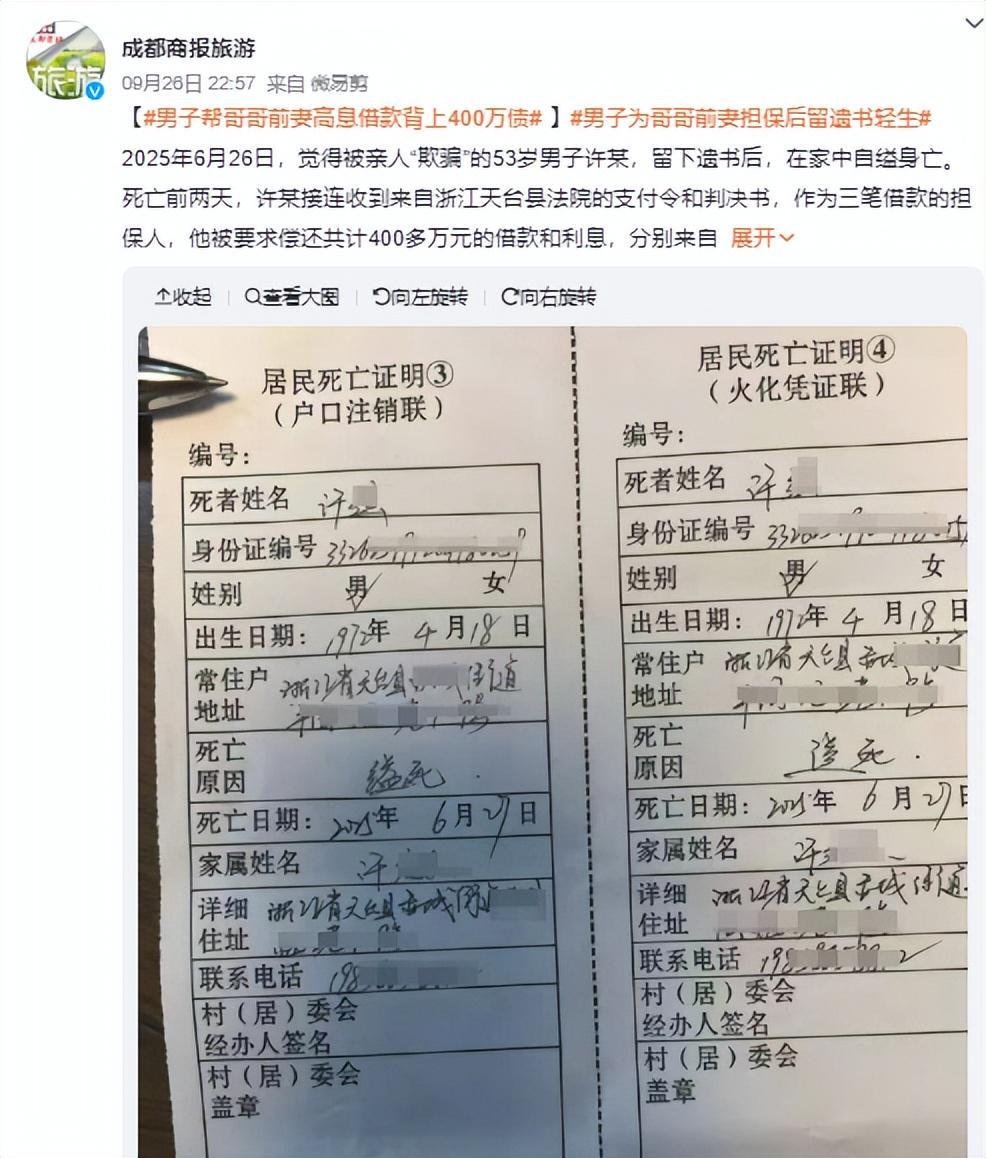 成都商报旅游
09月26日 22:57 来自 微易剪
【#男子帮哥哥前妻高息借款背上400万债# 】#男子为哥哥前妻担保后留遗书轻生#
2025年6月26日，觉得被亲人“欺骗”的53岁男子许某，留下遗书后，在家中自缢身亡。
死亡前两天，许某接连收到来自浙江天台县法院的支付令和判决书，作为三笔借款的担
保人，他被要求偿还共计400多万元的借款和利息，分别来自 展开
收起 查看大图 向左旋转 向右旋转
居民死亡证明③
（户口注销联）
编号：
死者姓名 许
身份证编号
姓别 男 女
出生日期：1972年 4月18日
常住户 浙江省天台县 街道
地址
死亡
原因 缢死
死亡日期：2025年 6月27日
家属姓名 许
详细 浙江省天台县赤城街
住址
联系电话 198
村（居）委会
经办人签名
村（居）委会
盖章
居民死亡证明④
（火化凭证联）
编号：
死者姓名 许
身份证编号
姓别 男 女
出生日期：1972年 4月18日
常住户 浙江省天台县赤城
地址
死亡
原因 缢死
死亡日期：2025年 6月27日
家属姓名 许
详细 浙江省天台县赤城街道
住址
联系电话 198
村（居）委会
经办人签名
村（居）委会
盖章